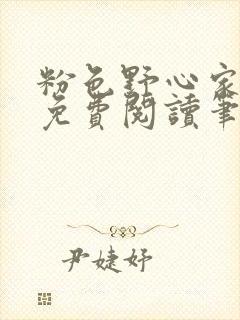 粉色野心家
免費閱讀筆
尹婕妤